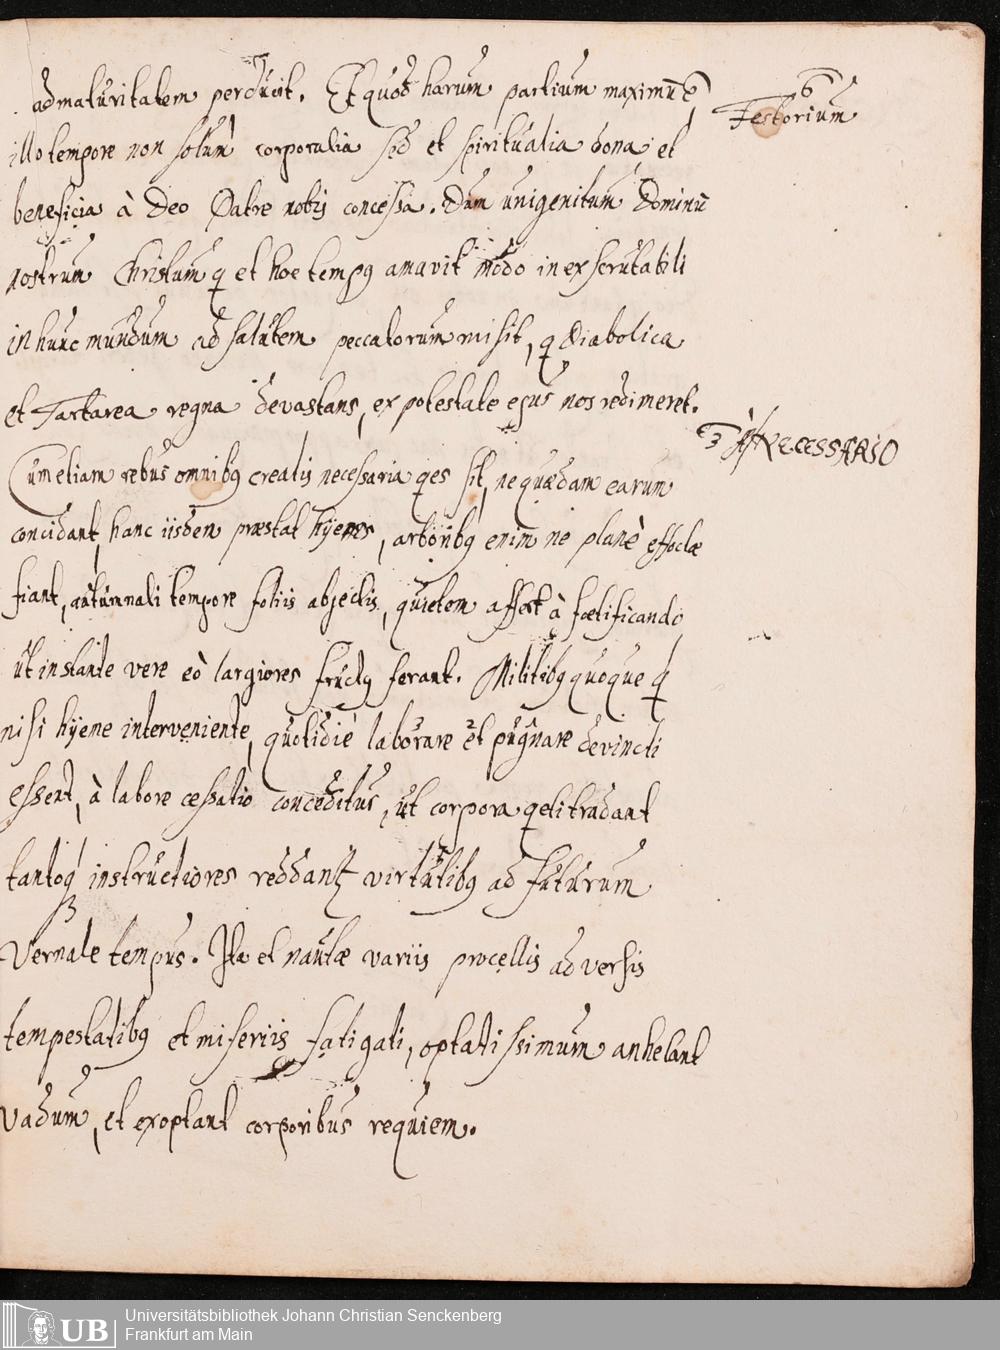 ad maturitatem perducit. Et quod harum partium maximũ e,
illo tempore non solum corporalia sed et spiritualia bona et
beneficia à Deo Patre nobis concessa. Dum unigenitum Dominũ
nostrum Christum q et hoc tempꝯ amavit modo inexscrutabili
in hunc mundum ad salutem peccatorum misit, q Diabolica
et Tartarea regna devastans, ex potestate ejus nos redimeret.
Cum etiam rebus omnibꝯ creatis necessaria qes sit, ne quædam earum
concidant, hanc iisdem præstat hyems, arboribꝯ enim ne planè effoetæ
fiant, autumnali tempore foliis abjectis, quietem affert à foetificando
ut instante vere eò largiores fructꝯ ferant. Militibꝯ quoque q
nisi hyeme interveniente, quotidiè laborare et pugnare devincti
essent, à labore cessatio conceditur, ut corpora qeti tradant
tantoq instructiores reddantʒ virtutibꝯ ad futurum
vernale tempus. Ita et nautæ variis procellis adversis
tempestatibꝯ et miseriis fatigati, optatissimum anhelant
vadum, et exoptant corporibus requiem.
6
Testorium
3 A NECESSARIO
Universitätsbibliothek Johann Christian Senckenberg
Frankfurt am Main
UB